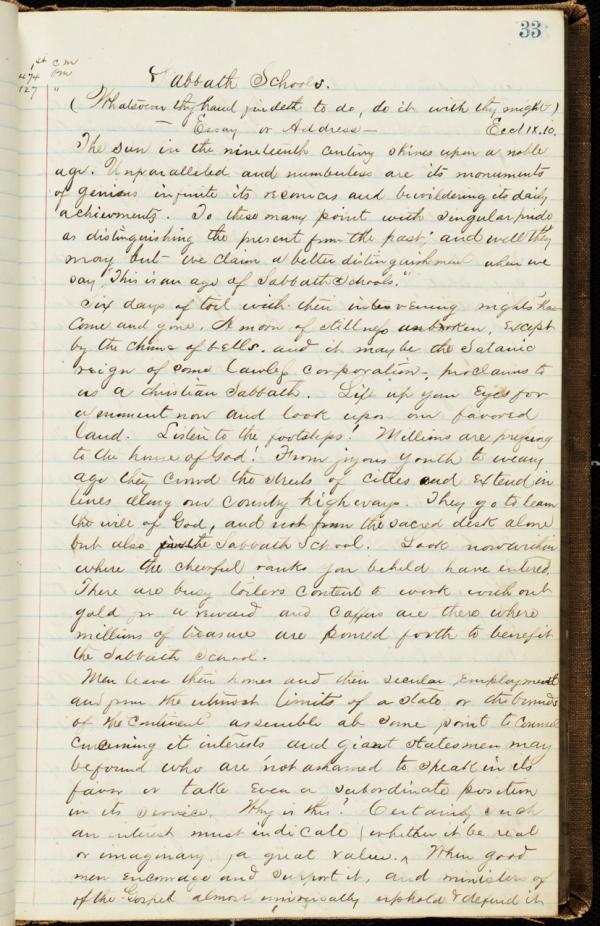 33
1st c m
474 pm
127 "
Sabbath Schools.
(Whatsoever thy hand findeth to do, do it with thy might)
— Essay or Address — Eccl IX.10.
The sun in the nineteenth century shines upon a noble
age. Unparalleled and numberless are its monuments
of genius infinite its resources and bewildering its daily
achievments. To these many point with singular pride
as distinguishing the present from the past; and well they
may but we claim a better distinguishment when we
say "This is an age of Sabbath Schools."
Six days of toil with their intervening nights have
come and gone. A morn of stillness unbroken, except
by the chime of bells. and it may be the Satanic
reign of some lawless corporation, proclaims to
us a christian Sabbath. Lift up your Eyes for
a moment now and look upon our favored
land. Listen to the footsteps! Millions are pressing
to the house of God! From joyous youth to weary
age they crowd the streets of cities and extend in
lines along our country highways. They go to learn
the will of God, and not from the sacred desk alone
but also the Sabbath School. Look now within
where the cheerful ranks you beheld have entered.
There are busy toilers content to work without
gold for a reward and coffers are there where
millions of treasure are poured forth to benefit
the Sabbath School.
Men leave their homes and their secular Employment
and from the utmost limits of a state or the bounds
of the continent assemble at some point to counsel
concerning its interests and giant statesmen may
be found who are not ashamed to speak in its
favor or take Even a subordinate position
in its service. Why is this? Certainly such
an interest must indicate (whether it be real
or imaginary, a great value. When good
men encourage and support it, and minister of
of the Gospel almost universally uphold & defend it